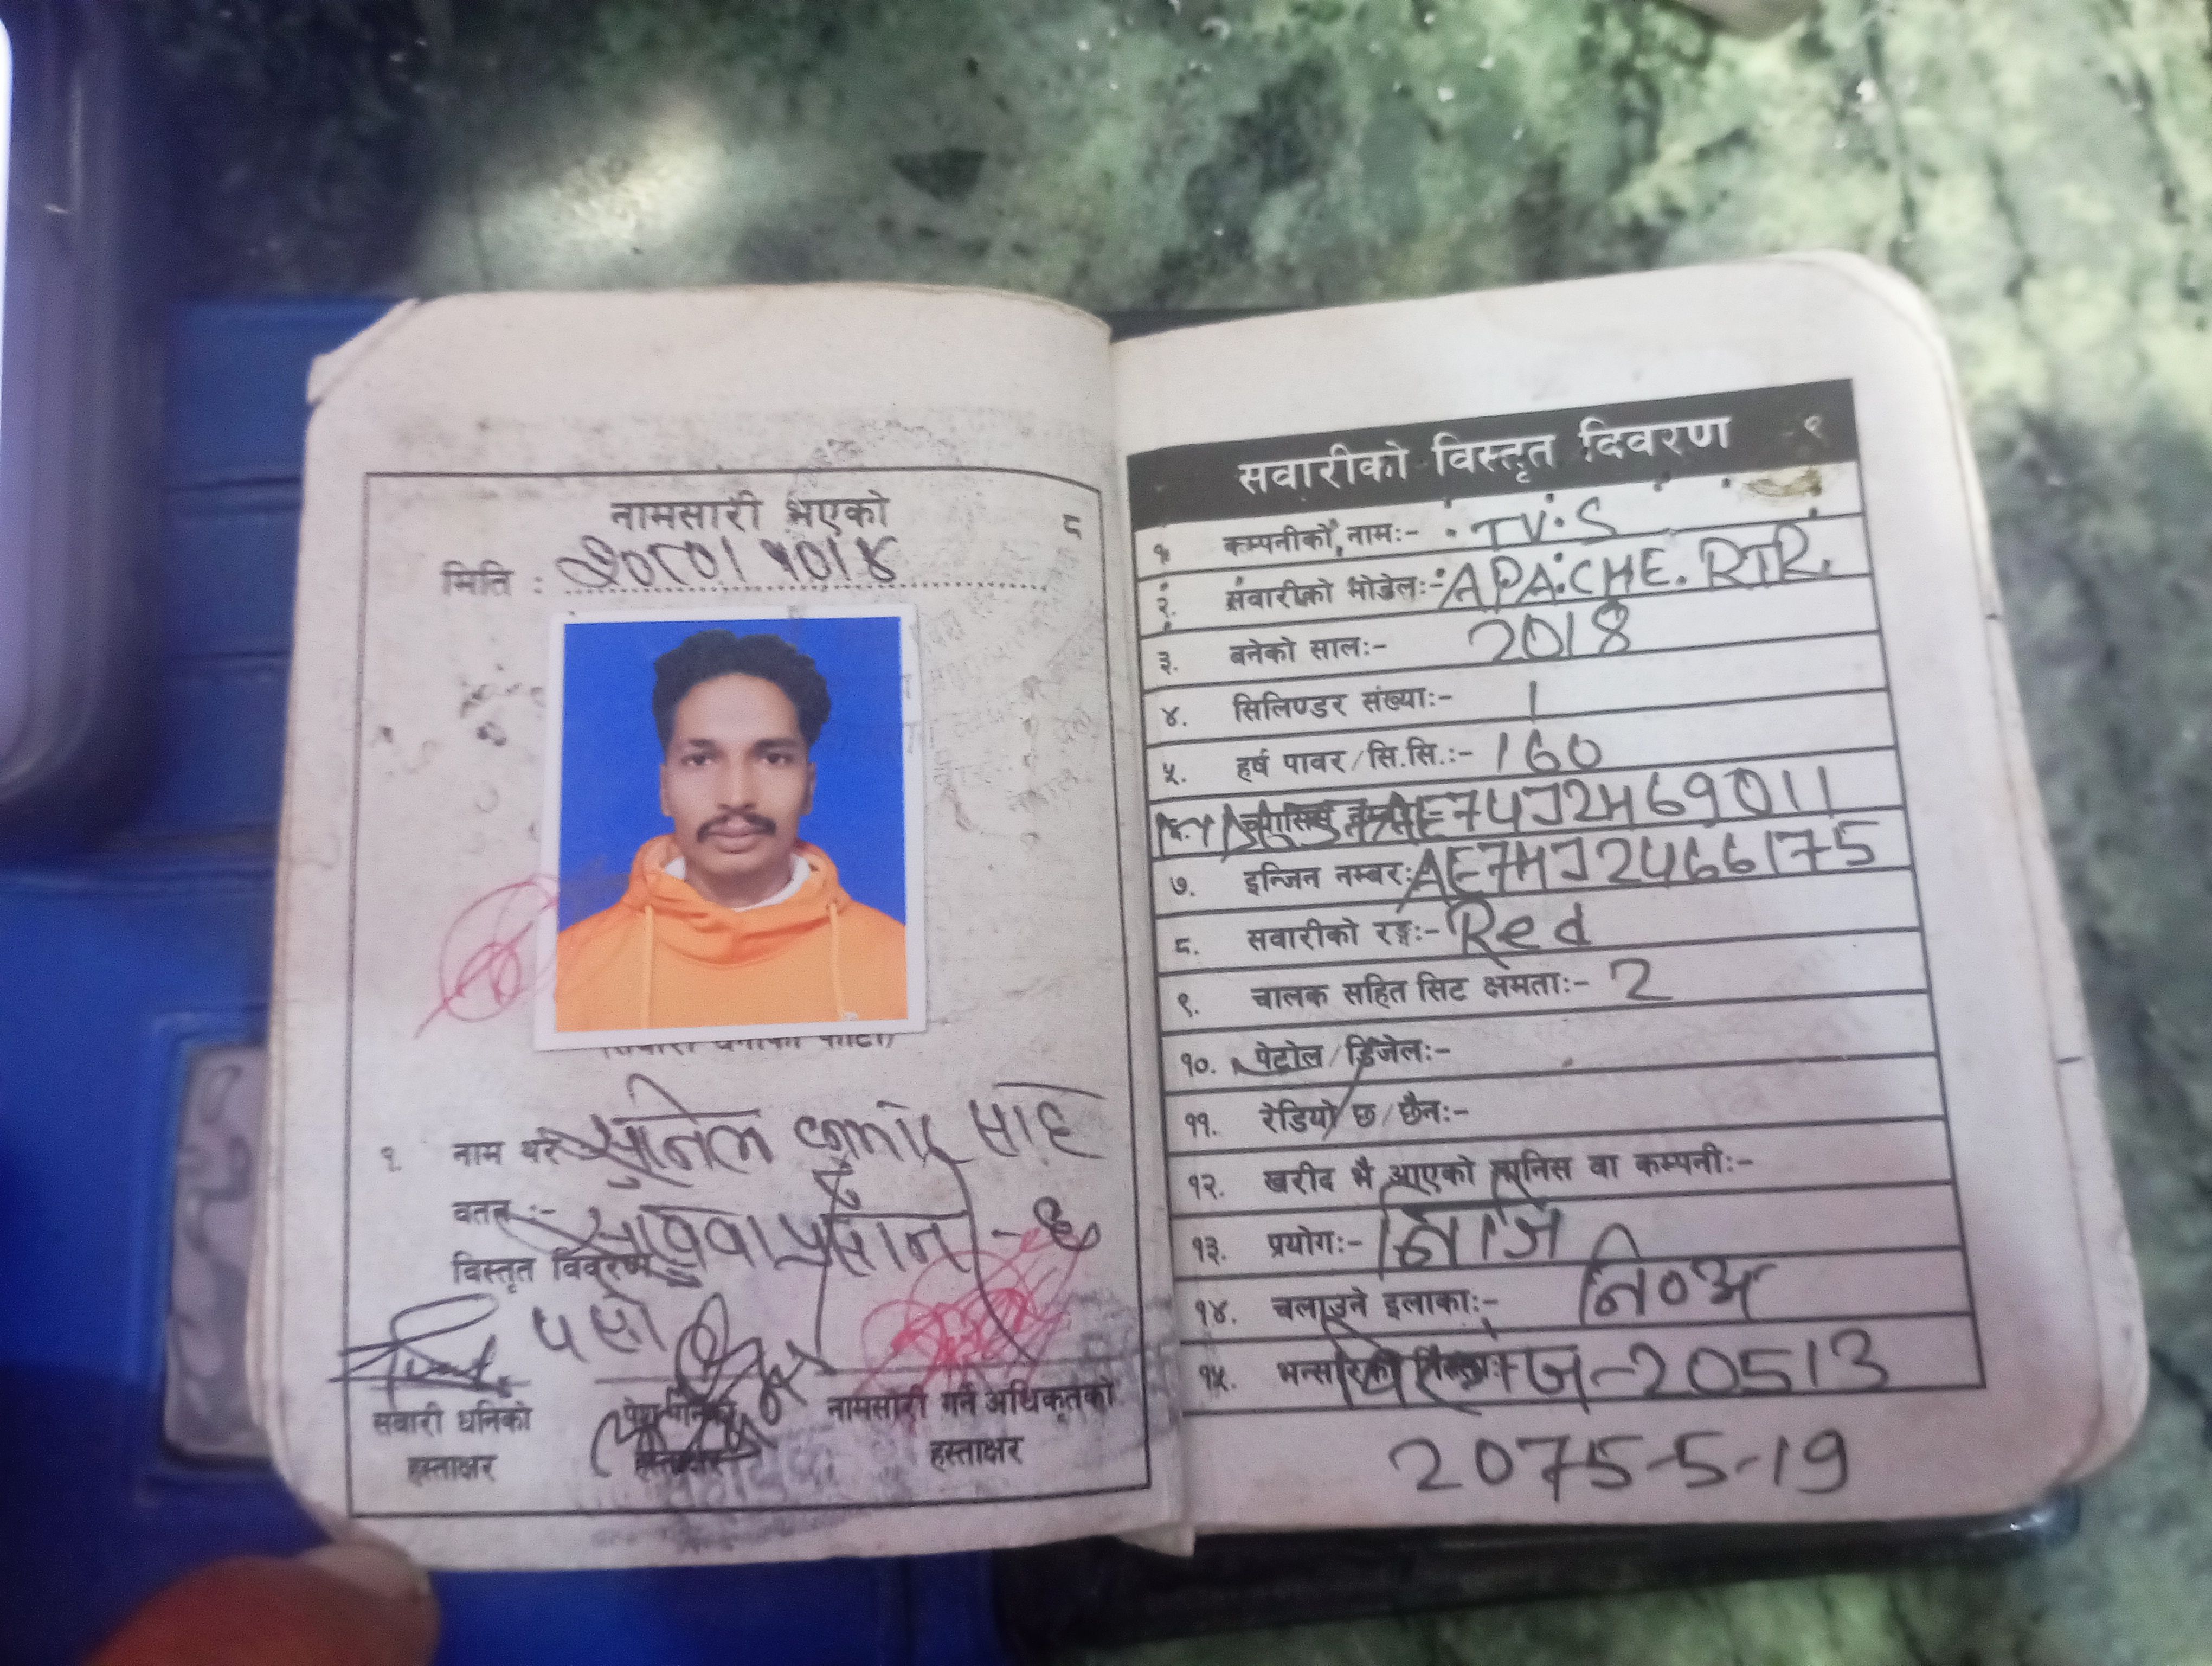 नामसारी भएको
८
मिति : २०८०।१०।४
१. नाम थर सुनिल कुमार साह
वतन :-
विस्तृत विवरण
सवारी धनिको
हस्ताक्षर
हस्ताक्षर
नामसारी गर्ने अधिकृतको
हस्ताक्षर
सवारीको विस्तृत विवरण ९
१. कम्पनीको नामः- T.V.S
२. सवारीको मोडेलः- APACHE. RTR.
३. बनेको सालः- 2018
४. सिलिण्डर संख्याः- 1
५. हर्ष पावर/सि.सि.:- 160
६.
७. इन्जिन नम्बर: AE7HJ2466175
८. सवारीको रङ्गः- Red
९. चालक सहित सिट क्षमताः- 2
१०. पेट्रोल/डिजेलः-
११. रेडियो छ/छैनः-
१२. खरीद भै आएको मानिस वा कम्पनीः-
१३. प्रयोगः- निजि
१४. चलाउने इलाकाः- नि०अ
१५. 20513
2075-5-19